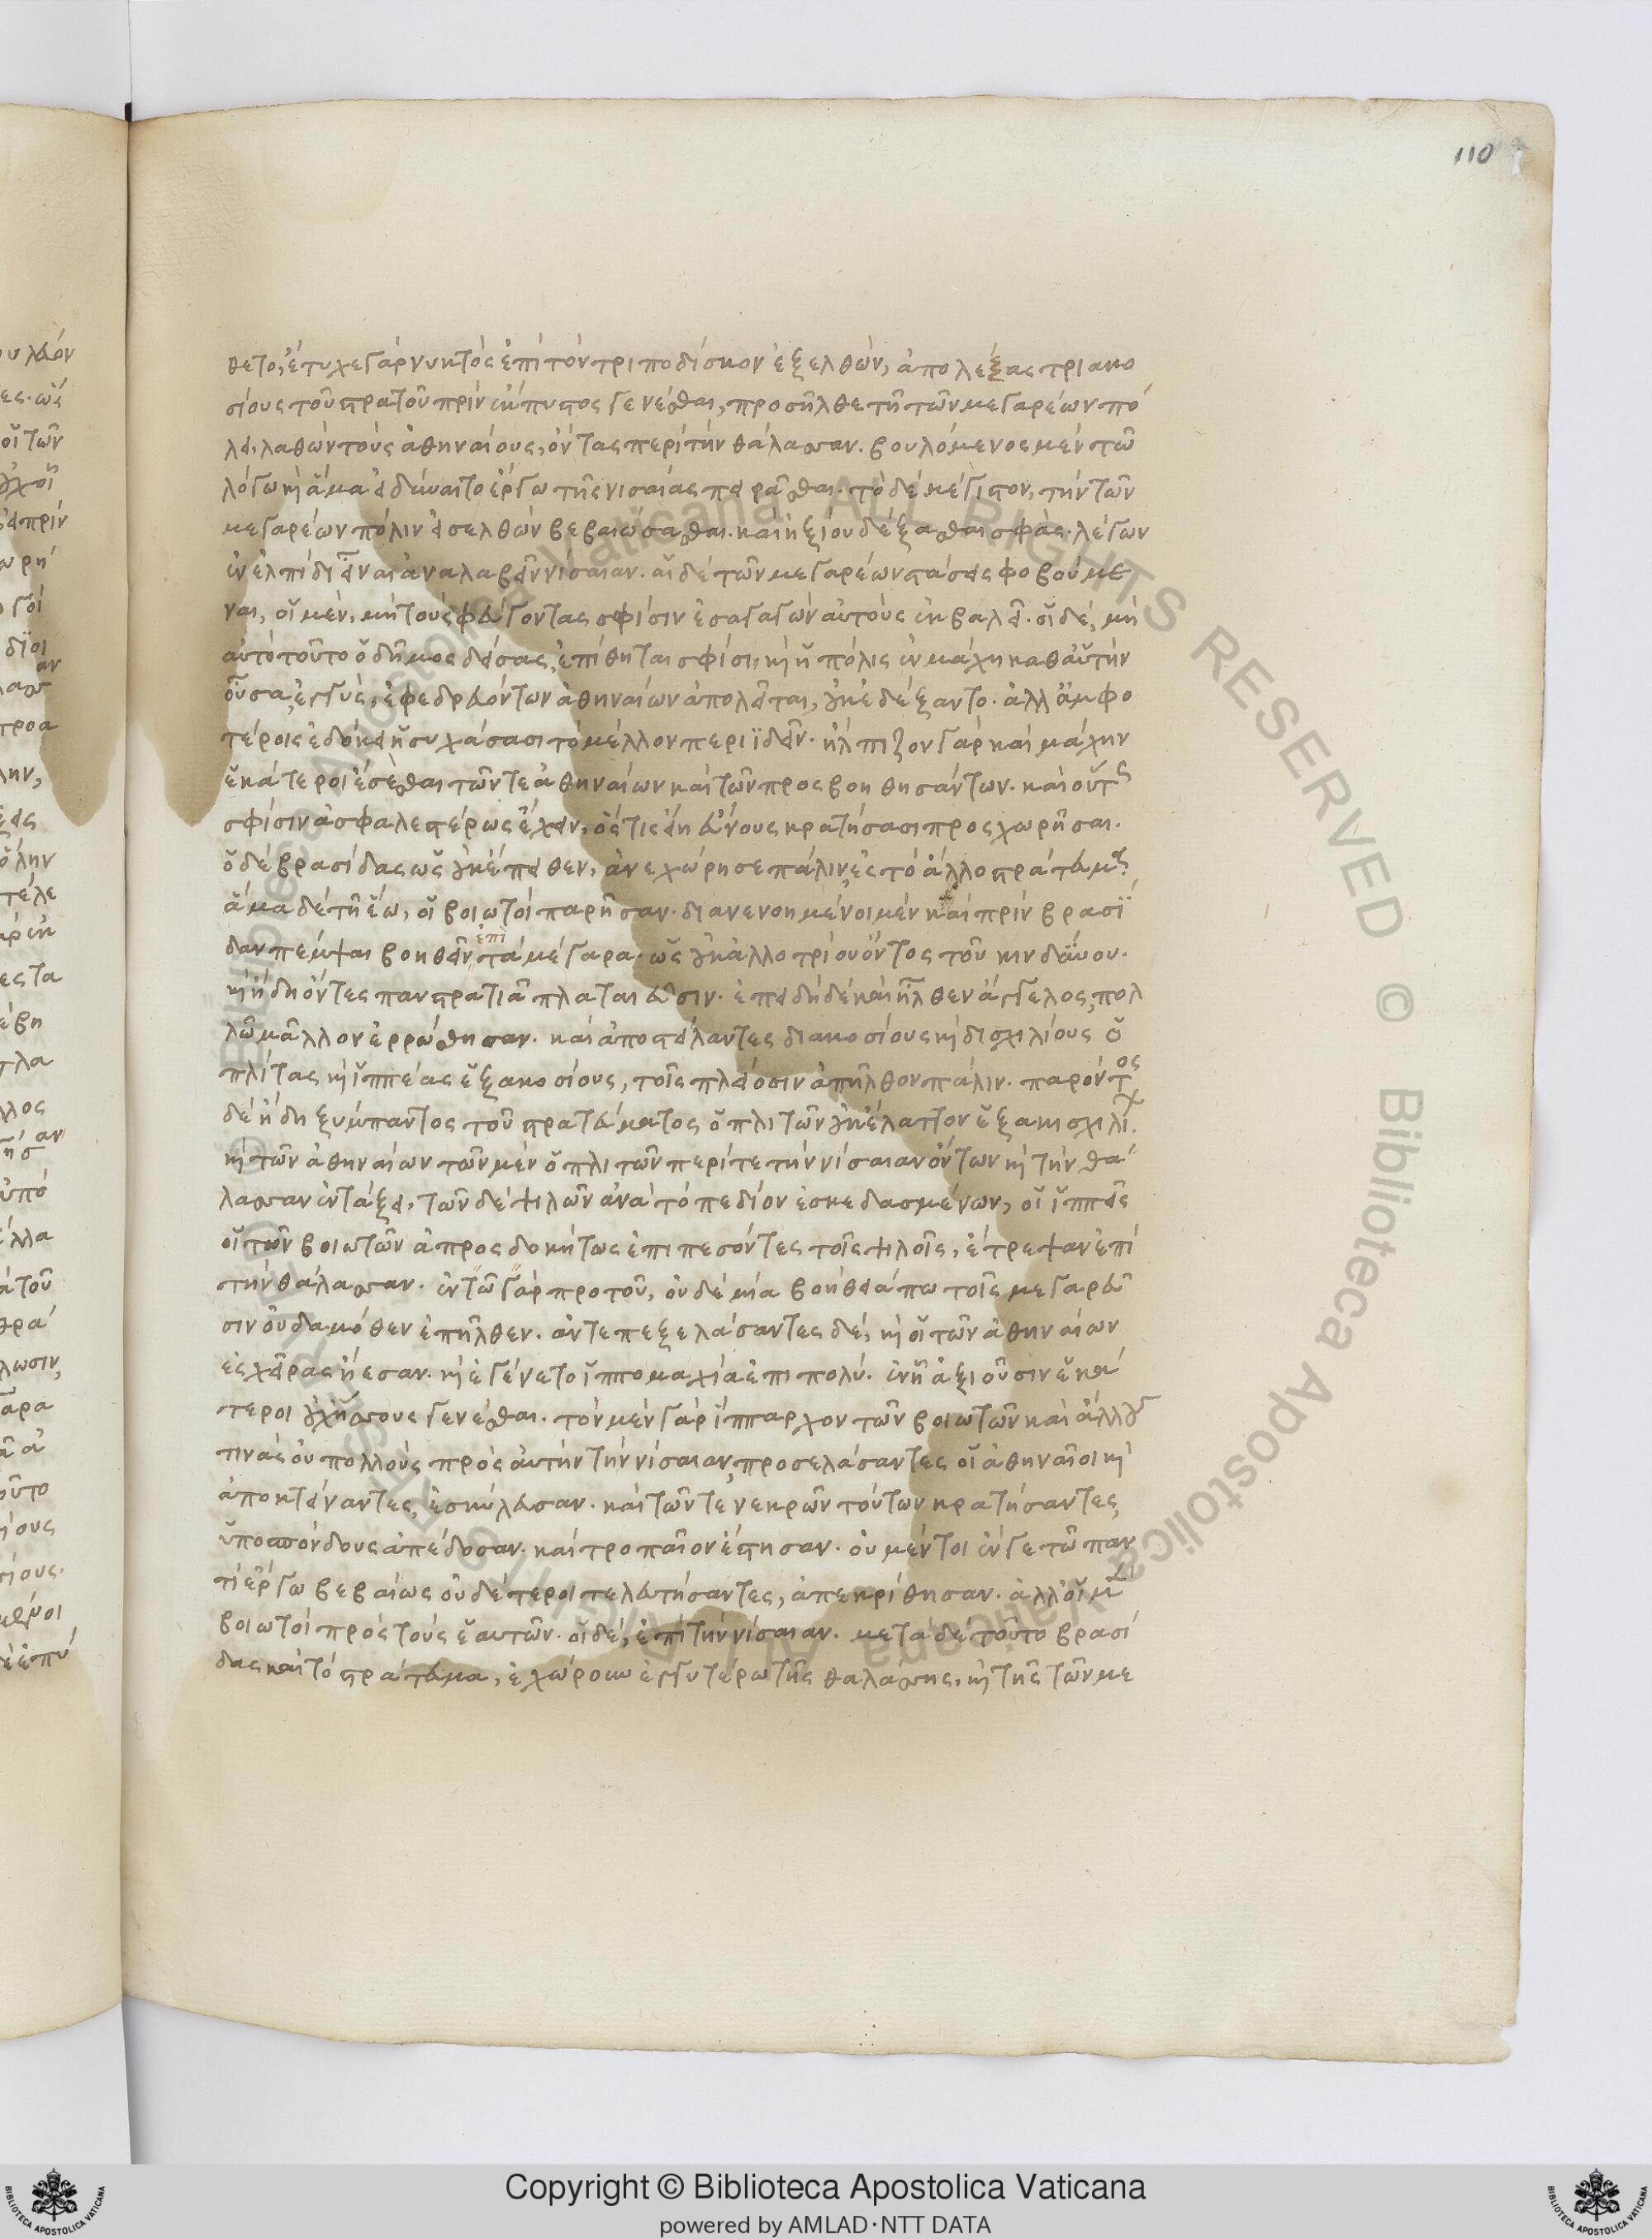 110
θετο, ἔτυχε γὰρ νυκτὸς ἐπὶ τὸν τριποδίσκον ἐξελθών, ἀπολέξας τριακο
σίους τοῦ στρατοῦ πρὶν ἔκπυστος γενέσθαι, προσῆλθε τῇ τῶν μεγαρέων πό
λει, λαθὼν τοὺς ἀθηναίους, ὄντας περὶ τὴν θάλασσαν. βουλόμενος μὲν τῶ
λόγω καὶ ἅμα εἰ δύναιτο ἔργω τῆς νισαίας πειρᾶσθαι. τὸ δὲ μέγιστον, τὴν τῶν
μεγαρέων πόλιν εἰσελθὼν βεβαιώσασθαι. καὶ ἠξίου δέξασθαι σφᾶς. λέγων
ἐν ἐλπίδι εἶναι ἀναλαβεῖν νίσαιαν. αἱ δὲ τῶν μεγαρέων στάσεις φοβούμε
ναι, οἱ μὲν, μὴ τοὺς φεύγοντας σφίσιν ἐσαγαγὼν αὐτοὺς ἐκβάλει. οἱ δὲ, μὴ
αὐτὸ τοῦτο ὁ δῆμος δείσας, ἐπίθηται σφίσι, καὶ ἡ πόλις ἐν μάχη καθ' αὑτὴν
οὖσα, ἐγγὺς, ἐφεδρευόντων ἀθηναίων ἀπολεῖται, οὐκ ἐδέξαντο. ἀλλ' ἀμφο
τέροις ἐδόκει ἡσυχάσασι τὸ μέλλον περιϊδεῖν. ἤλπιζον γὰρ καὶ μάχην
ἑκάτεροι ἔσεσθαι τῶν τε ἀθηναίων καὶ τῶν προσβοηθησάντων. καὶ οὕτως
σφίσιν ἀσφαλεστέρως ἔχειν, ὅς τις εἴη εὔνους κρατήσασι προσχωρῆσαι.
ὁ δὲ βρασίδας ὡς οὐκ ἔπειθεν, ἀνεχώρησε πάλιν ἐς τὸ ἄλλο στράτευμα.
ἅμα δὲ τῇ ἕω, οἱ βοιωτοὶ παρῆσαν. διανενοημένοι μὲν καὶ πρὶν βρασί
δαν πέμψαι βοηθεῖν ἐπὶ τὰ μέγαρα. ὡς οὐκ ἀλλοτρίου ὄντος τοῦ κινδύνου.
καὶ ἤδη ὄντες πανστρατιᾷ πλαταιεῦσιν. ἐπειδὴ δὲ καὶ ἦλθεν ἄγγελος, πολ
λῶ μᾶλλον ἐρρώσθησαν. καὶ ἀποστείλαντες διακοσίους καὶ δισχιλίους ὁ
πλίτας καὶ ἱππέας ἑξακοσίους, τοῖς πλείοσιν ἀπῆλθον πάλιν. παρόντος
δὲ ἤδη ξύμπαντος τοῦ στρατεύματος ὁπλιτῶν οὐκ ἔλαττον ἑξακισχιλίων.
καὶ τῶν ἀθηναίων τῶν μὲν ὁπλιτῶν περί τε τὴν νίσαιαν ὄντων καὶ τὴν θά
λασσαν ἐν τάξει. τῶν δὲ ψιλῶν ἀνὰ τὸ πεδίον ἐσκεδασμένων, οἱ ἱππεῖς
οἱ τῶν βοιωτῶν ἀπροσδοκήτως ἐπιπεσόντες τοῖς ψιλοῖς, ἔτρεψαν ἐπὶ
τὴν θάλασσαν. ἐν τῶ γὰρ προτοῦ, οὐδεμία βοήθειά πω τοῖς μεγαρεῦ
σιν οὐδαμόθεν ἐπῆλθεν. ἀντεπεξελάσαντες δὲ, καὶ οἱ τῶν ἀθηναίων
ἐς χεῖρας ᾔεσαν. καὶ ἐγένετο ἱππομαχία ἐπιπολύ. ἐν ᾗ ἀξιοῦσιν ἑκά
τεροι οὐχ ἥσσους γενέσθαι. τὸν μὲν γὰρ ἵππαρχον τῶν βοιωτῶν καὶ ἄλλους
τινὰς οὐ πολλοὺς πρὸς αὐτὴν τὴν νίσαιαν, προσελάσαντες οἱ ἀθηναῖοι καὶ
ἀποκτείναντες, ἐσκύλευσαν. καὶ τῶν τε νεκρῶν τούτων κρατήσαντες,
ὑποσπόνδους ἀπέδοσαν. καὶ τροπαῖον ἔστησαν. οὐ μέντοι ἔν γε τῶ παν
τὶ ἔργω βεβαίως οὐδέτεροι τελευτήσαντες, ἀπεκρίθησαν. ἀλλ' οἱ μὲν
βοιωτοὶ πρὸς τοὺς ἑαυτῶν. οἱ δὲ, ἐπὶ τὴν νίσαιαν. μετὰ δὲ τοῦτο βρασί
δας καὶ τὸ στράτευμα, ἐχώρουν ἐγγυτέρω τῆς θαλάσσης, καὶ τῆς τῶν με
Copyright © Biblioteca Apostolica Vaticana
powered by AMLAD·NTT DATA